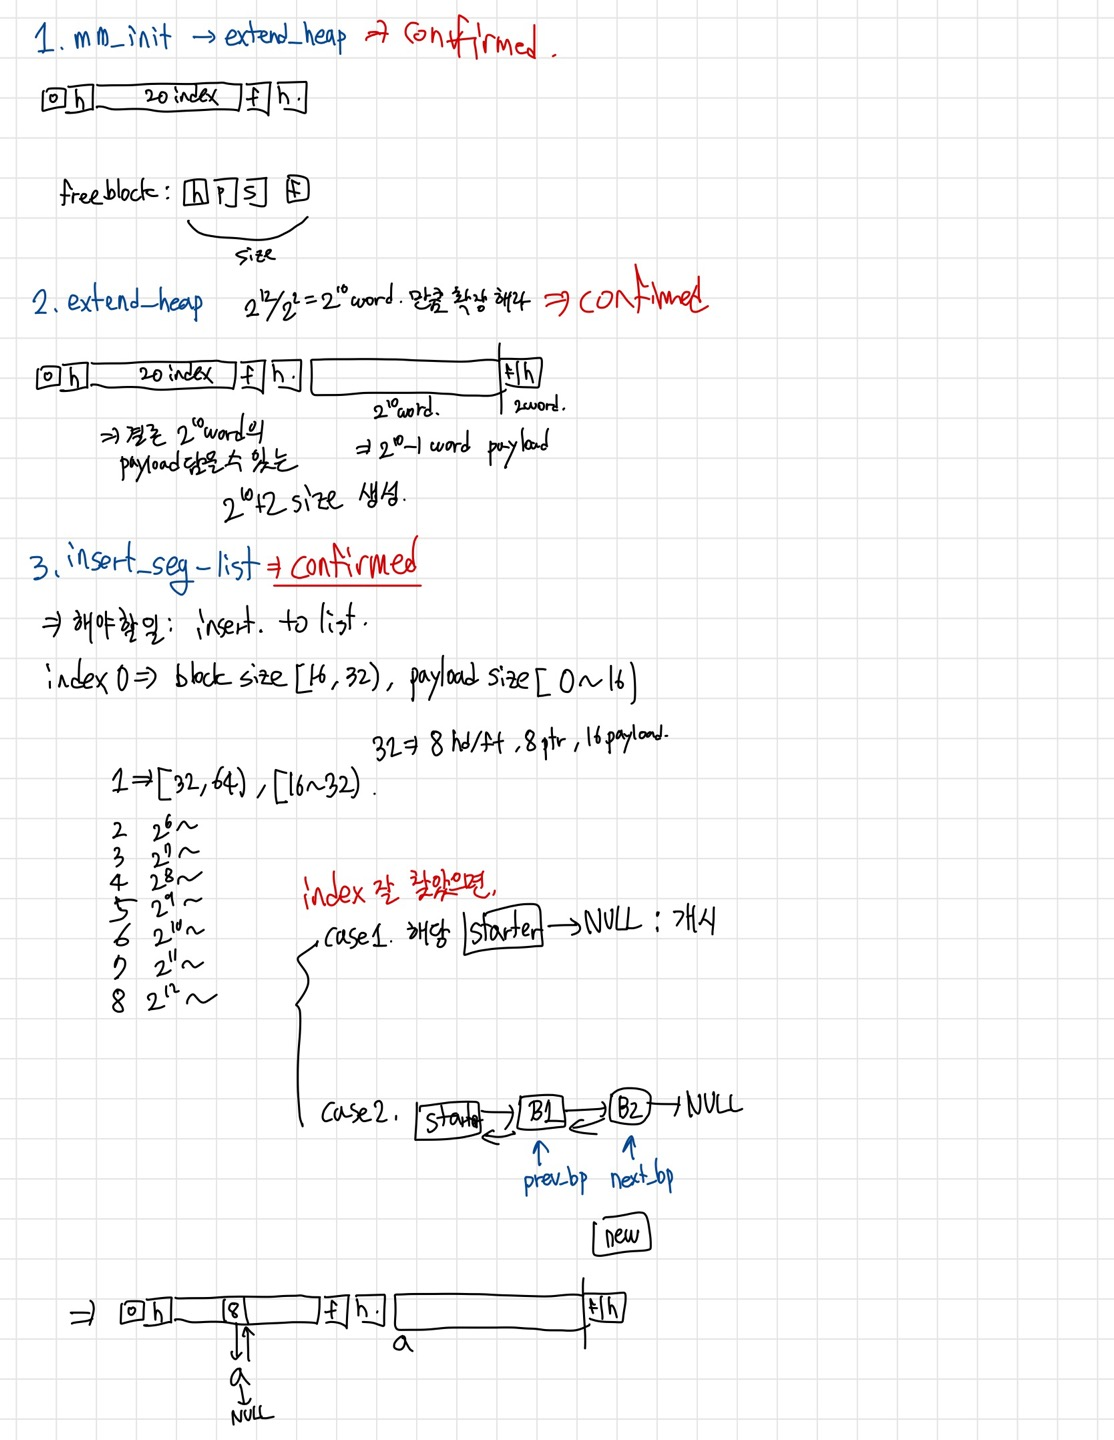 1. mm_init → extend_heap ⇒ confirmed.
0 h 20 index f h.
freeblock: h p s f
size
2. extend_heap 2¹²/2² = 2¹⁰ word. 만큼 확장해라 ⇒ confirmed
0 h 20 index f h. f h
2¹⁰word. 2word.
⇒ 결론 2¹⁰word의 ⇒ 2¹⁰-1 word payload
payload 담을 수 있는
2¹⁰+2 size 생성.
3. insert_seg-list ⇒ confirmed
⇒ 해야할일: insert. to list.
index 0 ⇒ block size [16, 32), payload size [ 0~16]
32 ⇒ 8 hd/ft, 8 ptr, 16 payload.
1 ⇒ [32, 64), [16~32).
2 2⁶~
3 2⁷~
4 2⁸~
5 2⁹~
6 2¹⁰~
7 2¹¹~
8 2¹²~
index 잘 찾았으면,
case1. 해당 starter → NULL : 개시
case2. starter B1 B2 → NULL
prev_bp next_bp
new
⇒ 0 h 8 f h. f h
a
a
NULL